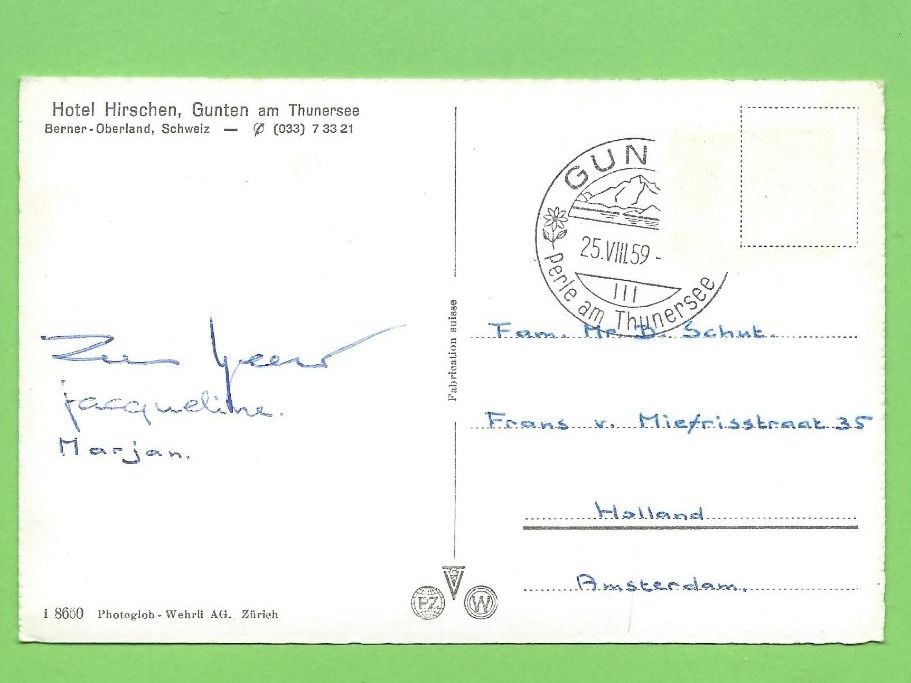 Hotel Hirschen, Gunten am Thunersee
Berner-Oberland, Schweiz — ✆ (033) 7 33 21
GUN
25.VIII.59 -
III
Perle am Thunersee
Fabrication suisse
Jacqueline.
Marjan.
Fam. Mr. D. Schut.
Frans v. Miefrisstraat 35
Holland
Amsterdam.
P.Z.
W
i 8660 Photoglob-Wehrli AG. Zürich